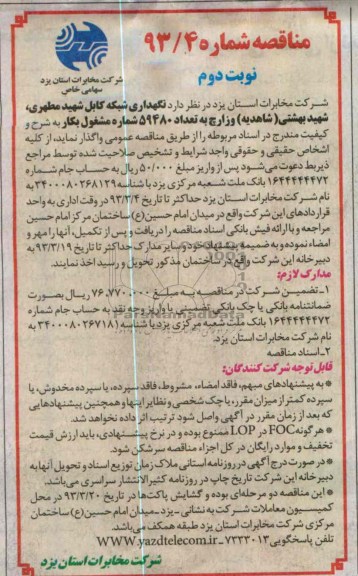 مناقصه شماره ۹۳/۴
نوبت دوم
شرکت مخابرات استان یزد
سهامی خاص
شرکت مخابرات استان یزد در نظر دارد نگهداری شبکه کابل شهید مطهری،
شهید بهشتی (شاهدیه) و زارچ به تعداد ۵۹۴۸۰ شماره مشغول بکار به شرح و
کیفیت مندرج در اسناد مربوطه را از طریق مناقصه عمومی واگذار نماید، از کلیه
اشخاص حقیقی و حقوقی واجد شرایط و تشخیص صلاحیت شده توسط مراجع
ذیربط دعوت می‌شود پس از واریز مبلغ ۵۰/۰۰۰ ریال به حساب جام شماره
۱۶۴۴۴۴۴۴۷۲ بانک ملت شعبه مرکزی یزد با شناسه ۳۴۰۰۰۸۰۲۶۸۱۲۹ به
نام شرکت مخابرات استان یزد حداکثر تا تاریخ ۹۳/۳/۴ در وقت اداری به واحد
قراردادهای این شرکت واقع در میدان امام حسین(ع) ساختمان مرکز امام حسین
مراجعه و با ارائه فیش بانکی اسناد مناقصه را دریافت و پس از تکمیل، آنها را مهر و
امضاء نموده و به ضمیمه پیشنهاد خود و سایر مدارک حداکثر تا تاریخ ۹۳/۳/۱۹ به
دبیرخانه این شرکت واقع در ساختمان مذکور تحویل و رسید اخذ نمایند.
مدارک لازم:
۱-تضمین شرکت در مناقصه به مبلغ ۷۶,۷۷۰,۰۰۰ ریال بصورت
ضمانتنامه بانکی یا چک بانکی تضمینی یا واریز وجه نقد به حساب جام شماره
۱۶۴۴۴۴۴۴۷۲ بانک ملت شعبه مرکزی یزد با شناسه (۳۴۰۰۰۸۰۲۶۷۱۸ به
نام شرکت مخابرات استان یزد.
۲-اسناد مناقصه
قابل توجه شرکت کنندگان:
* به پیشنهادهای مبهم، فاقد امضاء، مشروط، فاقد سپرده، یا سپرده مخدوش، یا
سپرده کمتر از میزان مقرر، یا چک شخصی و نظایر اینها و همچنین پیشنهادهایی
که بعد از زمان مقرر در آگهی واصل شود ترتیب اثر داده نخواهد شد.
* هر گونه FOC در LOP ممنوع بوده و در نرخ پیشنهادی، باید ارزش قیمت
تخفیف و موارد رایگان در کل اجزاء مناقصه سرشکن شود.
* در صورت درج آگهی در روزنامه استانی ملاک زمان توزیع اسناد و تحویل آنها به
دبیرخانه این شرکت تاریخ چاپ در روزنامه کثیر الانتشار سراسری می‌باشد.
* این مناقصه دو مرحله‌ای بوده و گشایش پاکت‌ها در تاریخ ۹۳/۳/۲۰ در محل
کمیسیون معاملات شرکت به نشانی - یزد - میدان امام حسین(ع) ساختمان
مرکزی شرکت مخابرات استان یزد طبقه همکف می‌باشد.
تلفن پاسخگویی ۷۲۳۳۰۱۳ - WWW.yazdtelecom.ir
شرکت مخابرات استان یزد